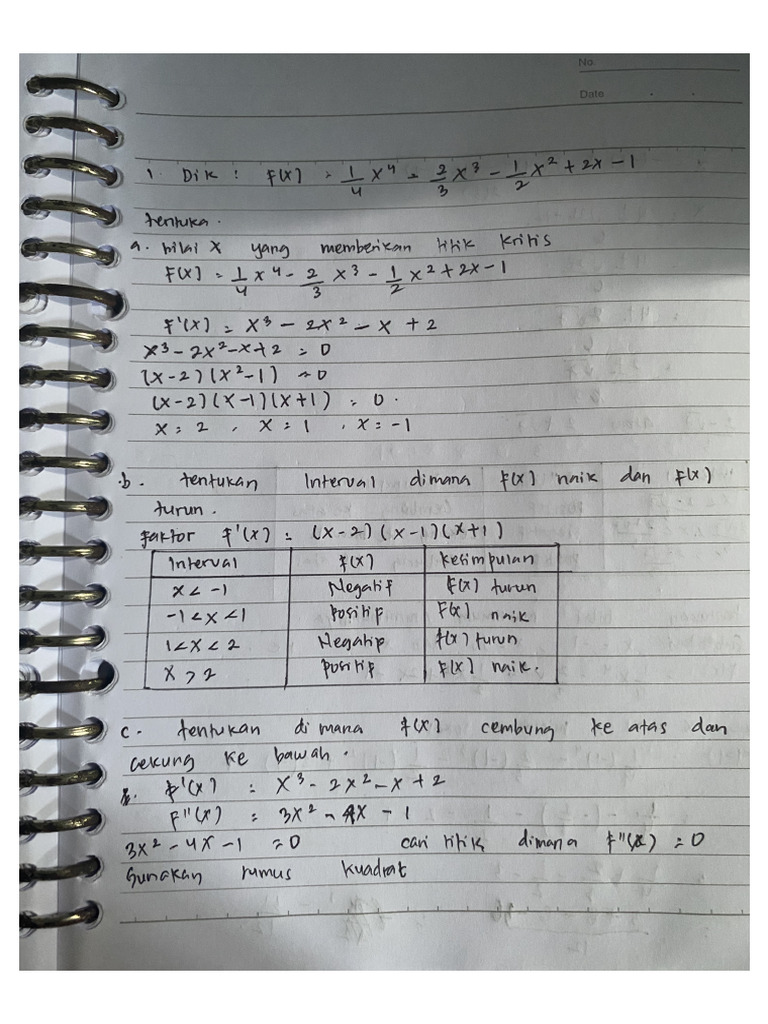 No.
Date
1. Dik : F(x) = 1/4 x⁴ - 2/3 x³ - 1/2 x² + 2x - 1
tentuka.
a. nilai x yang memberikan titik kritis
F(x) = 1/4 x⁴ - 2/3 x³ - 1/2 x² + 2x - 1
F'(x) = x³ - 2x² - x + 2
x³ - 2x² - x + 2 = 0
(x-2)(x²-1) = 0
(x-2)(x-1)(x+1) = 0.
x = 2 , x = 1 , x = -1
b. tentukan Interval dimana f(x) naik dan f(x)
turun.
faktor F'(x) = (x-2)(x-1)(x+1)
Interval f(x) kesimpulan
x < -1 Negatif f(x) turun
-1 < x < 1 Positip F(x) naik
1 < x < 2 Negatip f(x) turun
x > 2 Positip f(x) naik.
c. tentukan dimana f(x) cembung ke atas dan
cekung ke bawah.
F'(x) = x³ - 2x² - x + 2
F"(x) = 3x² - 4x - 1
3x² - 4x - 1 = 0 cari titik dimana F"(x) = 0
Gunakan rumus kuadrat